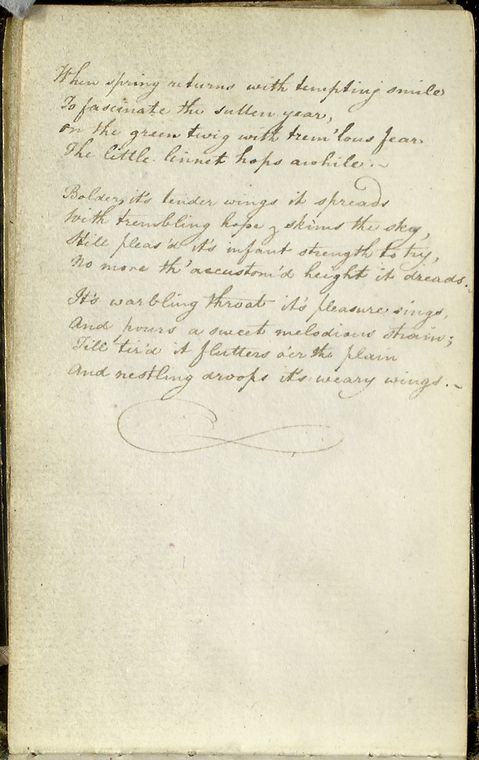 When spring returns with tempting smile
To fascinate the sullen year,
On the green twig with trem'lous fear
The little linnet hops awhile.-
Bolder, it's tender wings it spreads
With trembling hope & skims the sky,
Still pleas'd it's infant strength to try,
No more th' accustom'd height it dreads.-
It's warbling throat it's pleasure sings,
And pours a sweet melodious strain;
Till tir'd it flutters o'er the plain
And nestling droops it's weary wings.-